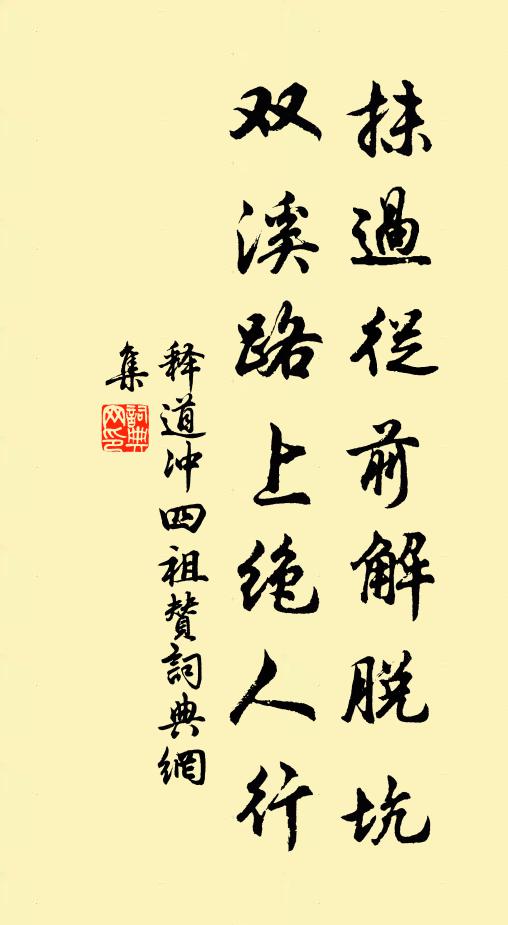 抹過從前解脱坑
双溪路上绝人行
释道冲四祖赞詞典網
集
詞典
网印